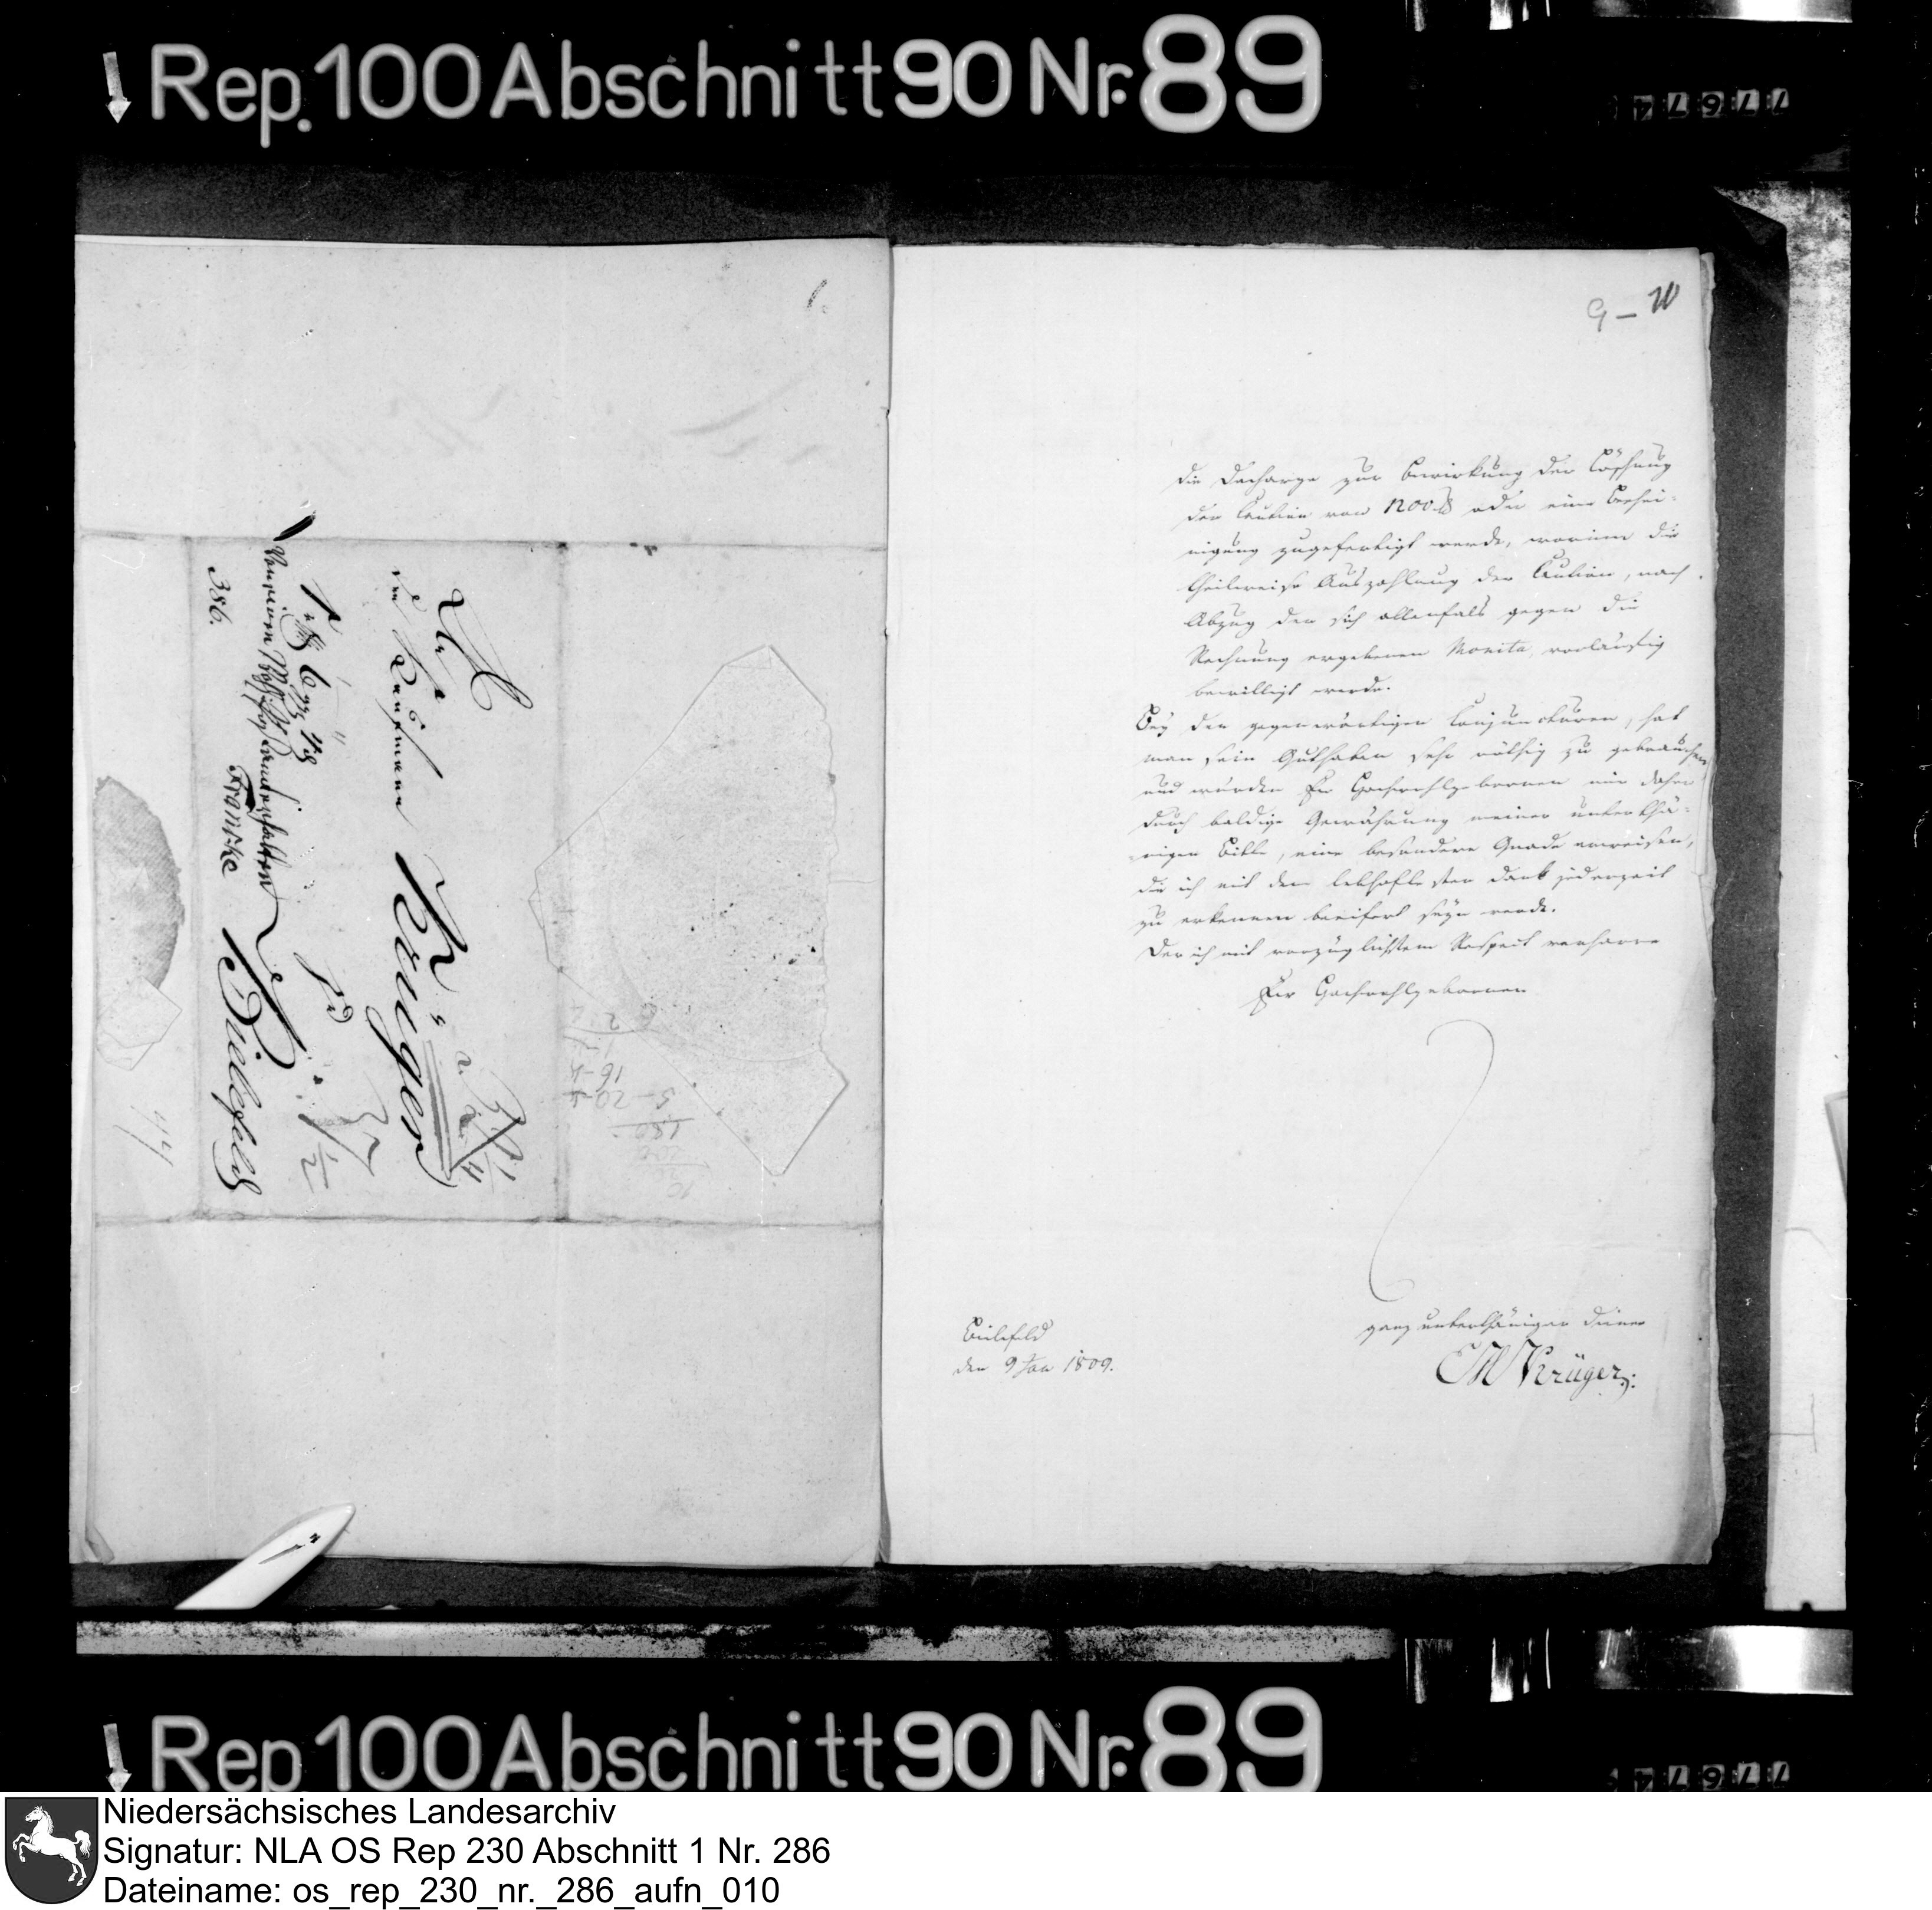 Rep. 100 Abschnitt 90 Nr. 89
77674
9 – 10
die Decharge zur Bewirkung der Löschung
der Caution von 1200 rß oder eine Beschei-
nigung zugefertigt werde, worinn die
theilweise Auszahlung der Caution, nach
Abzug der sich allenfals gegen die
Rechnung ergebenen Monita, vorläufig
bewilligt werde.
Bey den gegenwärtigen Conjuncturen, hat
man sein Guthaben sehr nöthig zu gebrauchen
und würden Ew Hochwohlgebornen mir daher
durch baldige Gewährung meiner unterthä-
nigen Bitte, eine besondere Gnade erweisen,
die ich mit dem lebhaftesten Dank jederzeit
zu erkennen beeifert seyn werde.
Der ich mit vorzüglichstem Respect verharre
Ew Hochwohlgebornen
ganz unterthäniger Diener
CM Krüger
Bielefeld
den 9 Jan 1809.
An
den Kaufmann Krüger
Franske
Bielefeld
386.
Rep. 100 Abschnitt 90 Nr. 89
77674
Niedersächsisches Landesarchiv
Signatur: NLA OS Rep 230 Abschnitt 1 Nr. 286
Dateiname: os_rep_230_nr._286_aufn_010